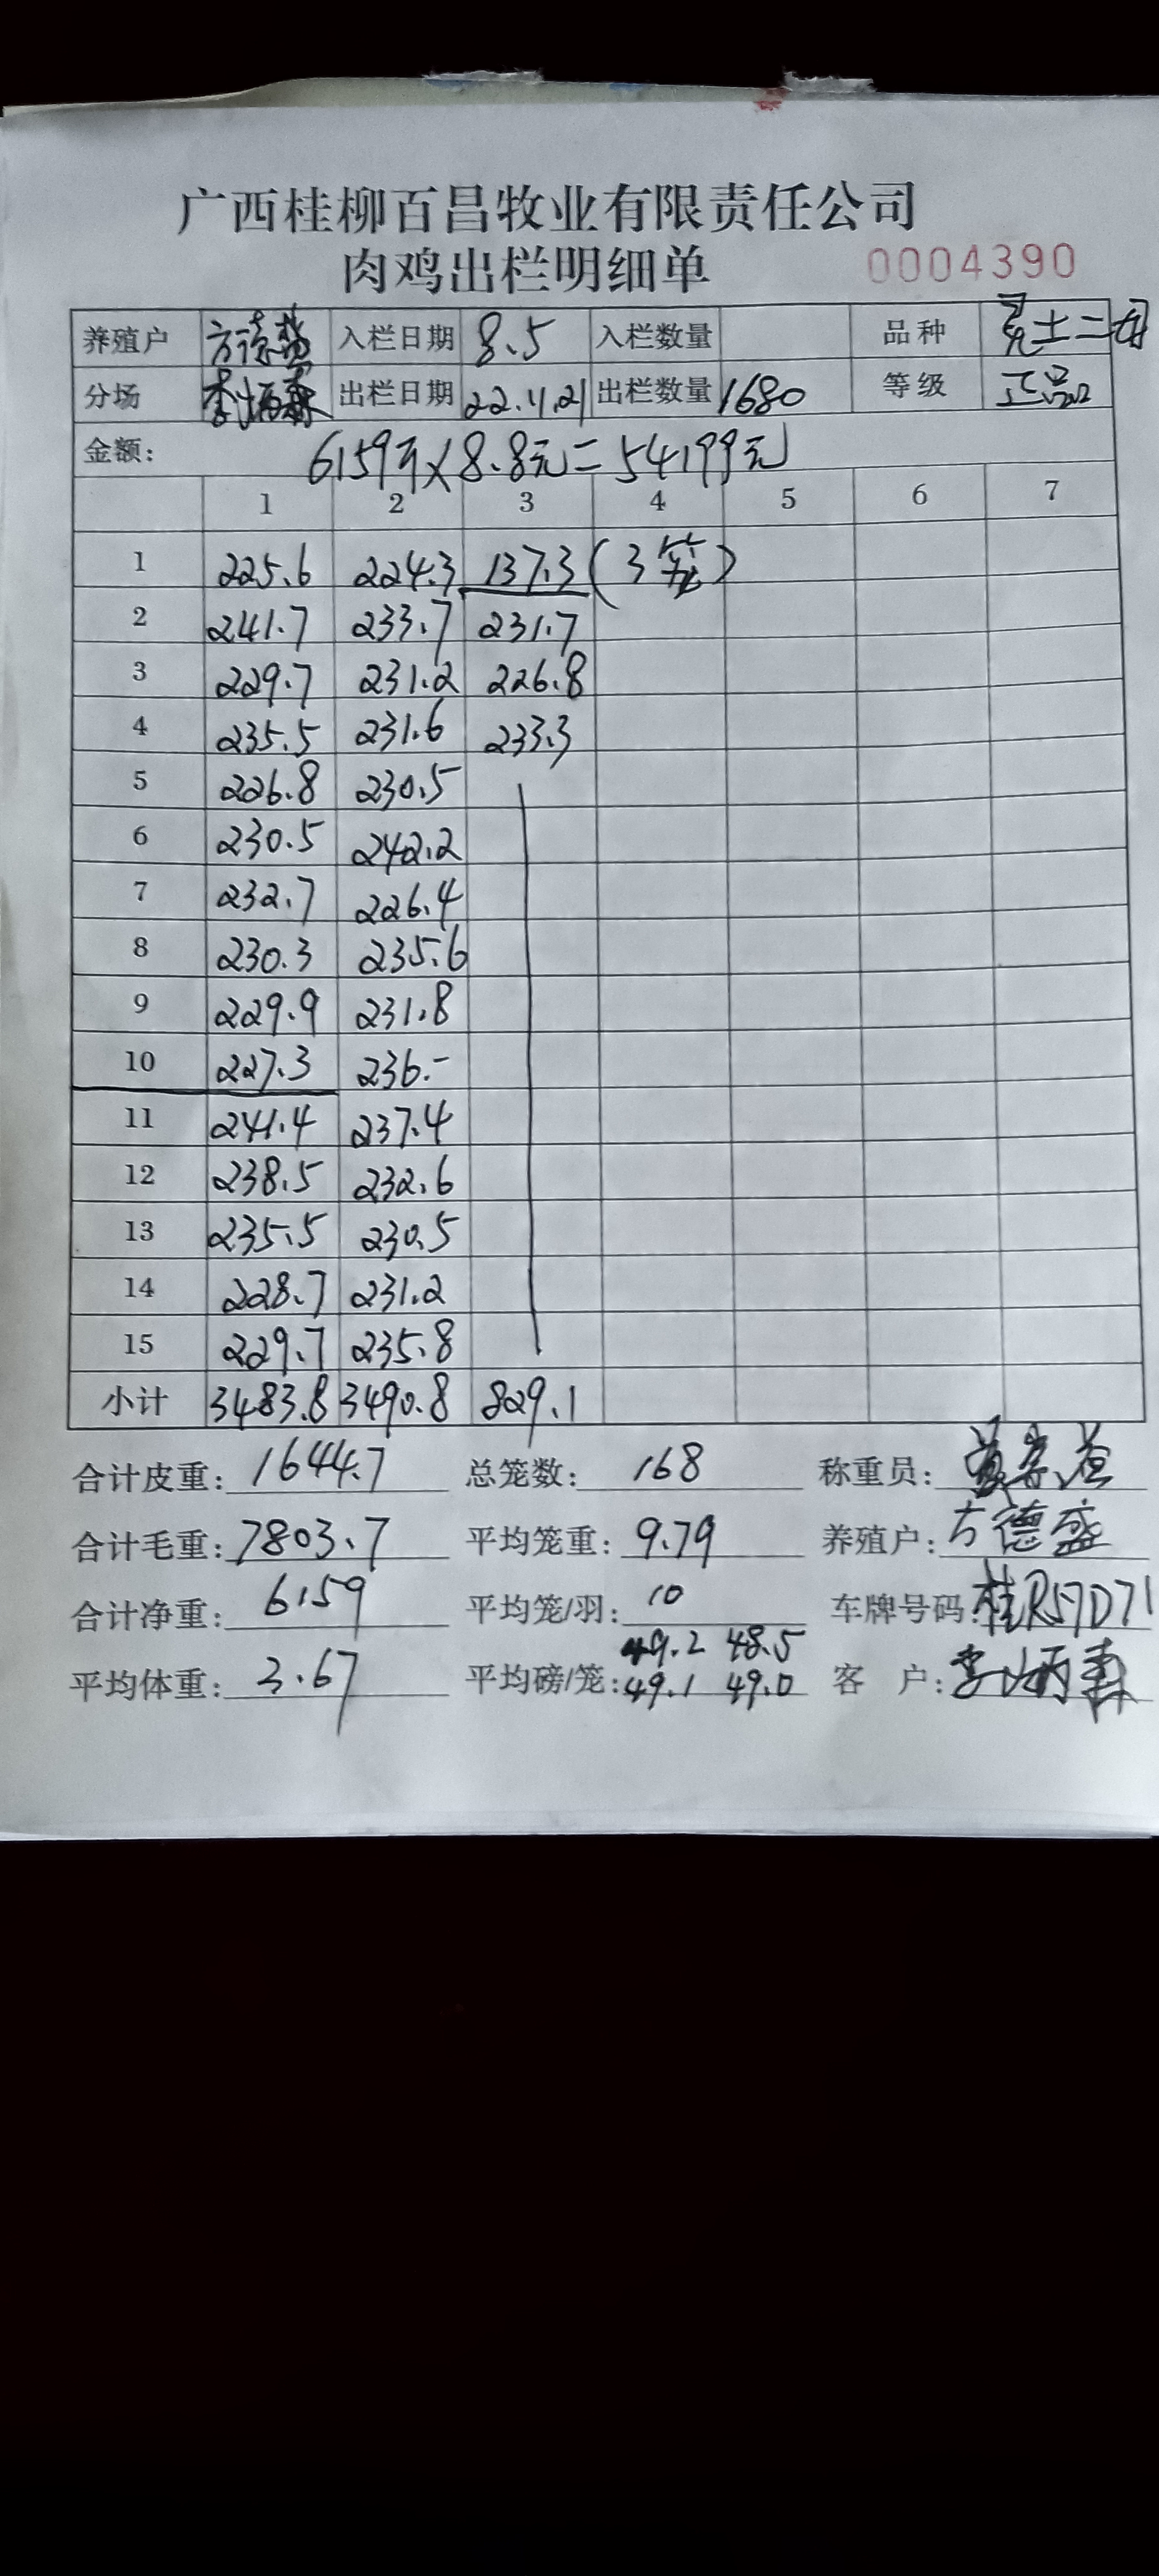 广西桂柳百昌牧业有限责任公司
肉鸡出栏明细单 0004390
养殖户 方德盛 入栏日期 8.5 入栏数量 品种
分场 李炳森 出栏日期 22.11.21 出栏数量 1680 等级 正品
金额: 6159斤×8.8元=54199元
1 2 3 4 5 6 7
1 225.6 224.3 137.3 (3笼)
2 241.7 233.7 231.7
3 229.7 231.2 226.8
4 235.5 231.6 233.3
5 226.8 230.5
6 230.5 242.2
7 232.7 226.4
8 230.3 235.6
9 229.9 231.8
10 227.3 236.-
11 241.4 237.4
12 238.5 232.6
13 235.5 230.5
14 228.7 231.2
15 229.7 235.8
小计 3483.8 3490.8 829.1
合计皮重: 1644.7 总笼数: 168 称重员:
合计毛重: 7803.7 平均笼重: 9.79 养殖户: 方德盛
合计净重: 6159 平均笼/羽: 10 车牌号码: 桂R57D71
49.2 48.5
平均体重: 3.67 平均磅/笼: 49.1 49.0 客 户: 李炳森